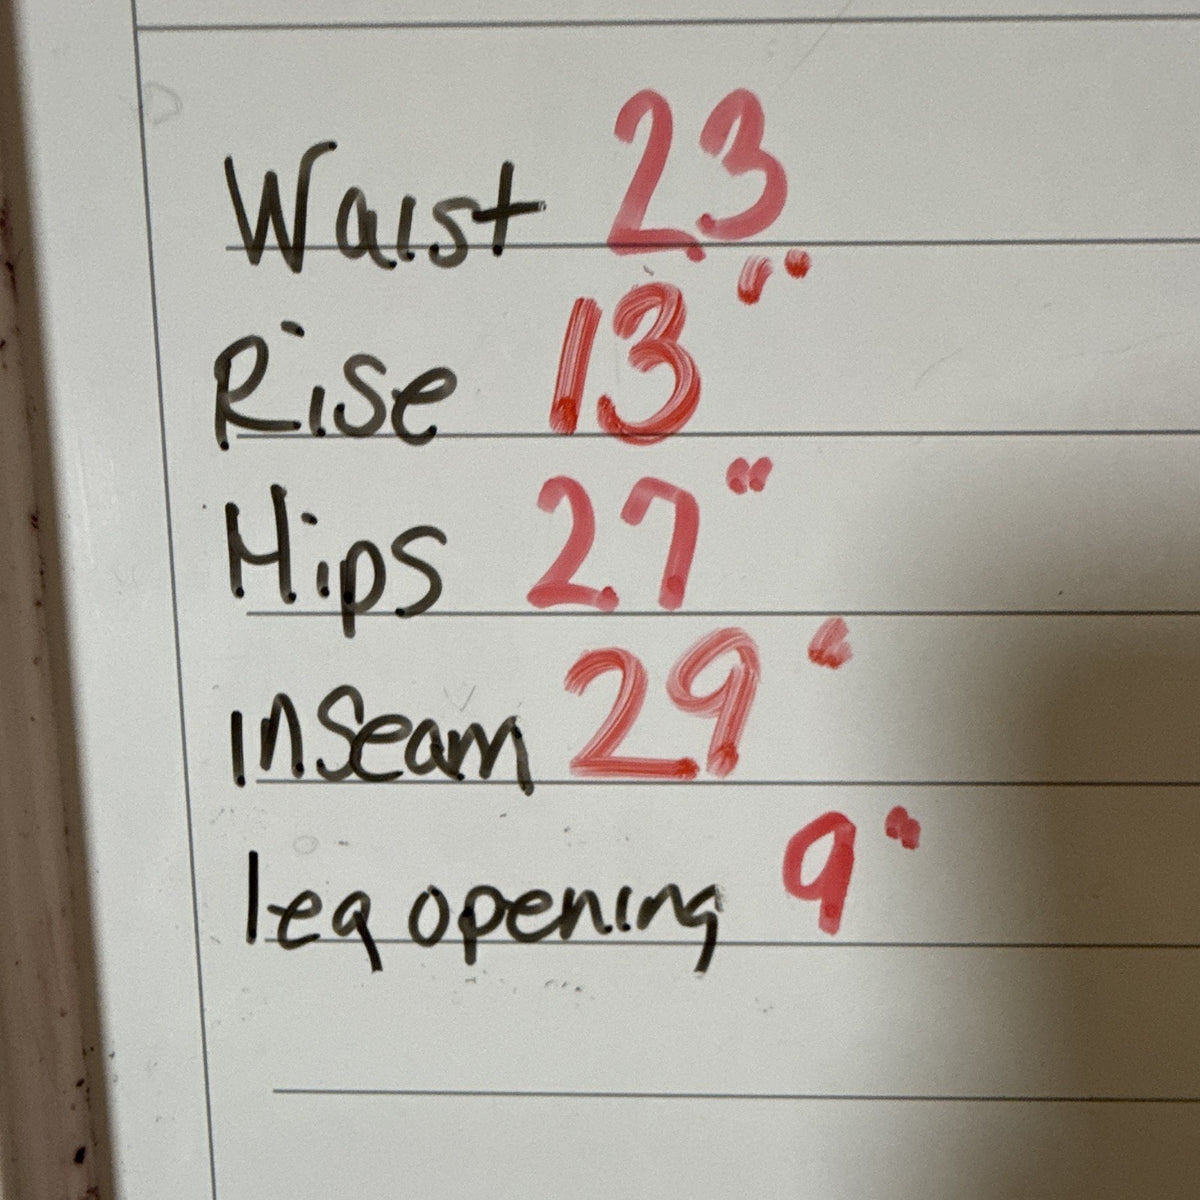 Waist 23
Rise 13"
Hips 27"
inseam 29"
leg opening 9"